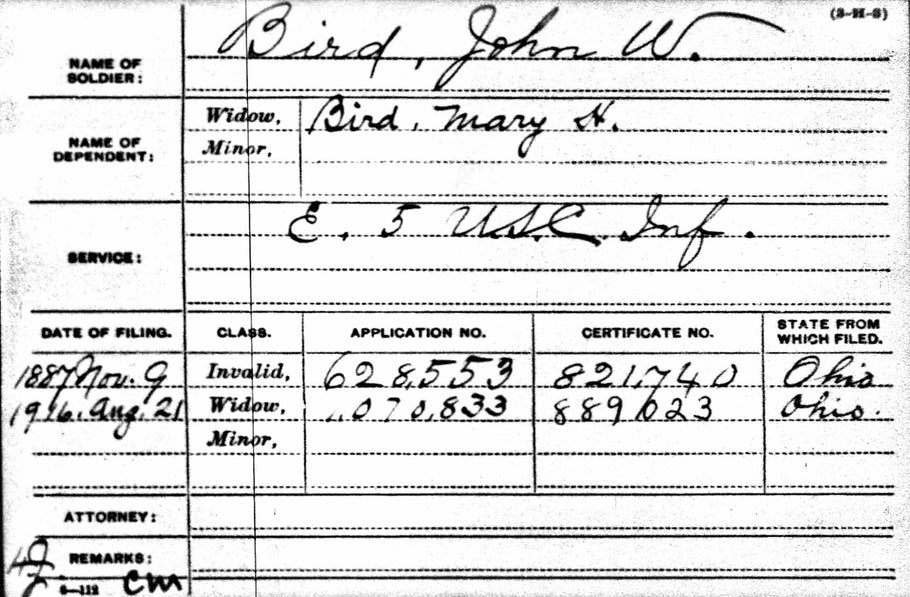 (3-H-3)
NAME OF SOLDIER: Bird, John W.
NAME OF DEPENDENT: Widow, Bird, Mary H.
Minor,
SERVICE: E. 5 U.S.C. Inf.
DATE OF FILING. CLASS. APPLICATION NO. CERTIFICATE NO. STATE FROM WHICH FILED.
1887 Nov. 9 Invalid, 628,553 821,740 Ohio
1916. Aug. 21 Widow, 889,023 Ohio.
Minor,
ATTORNEY:
REMARKS:
3—112 cm